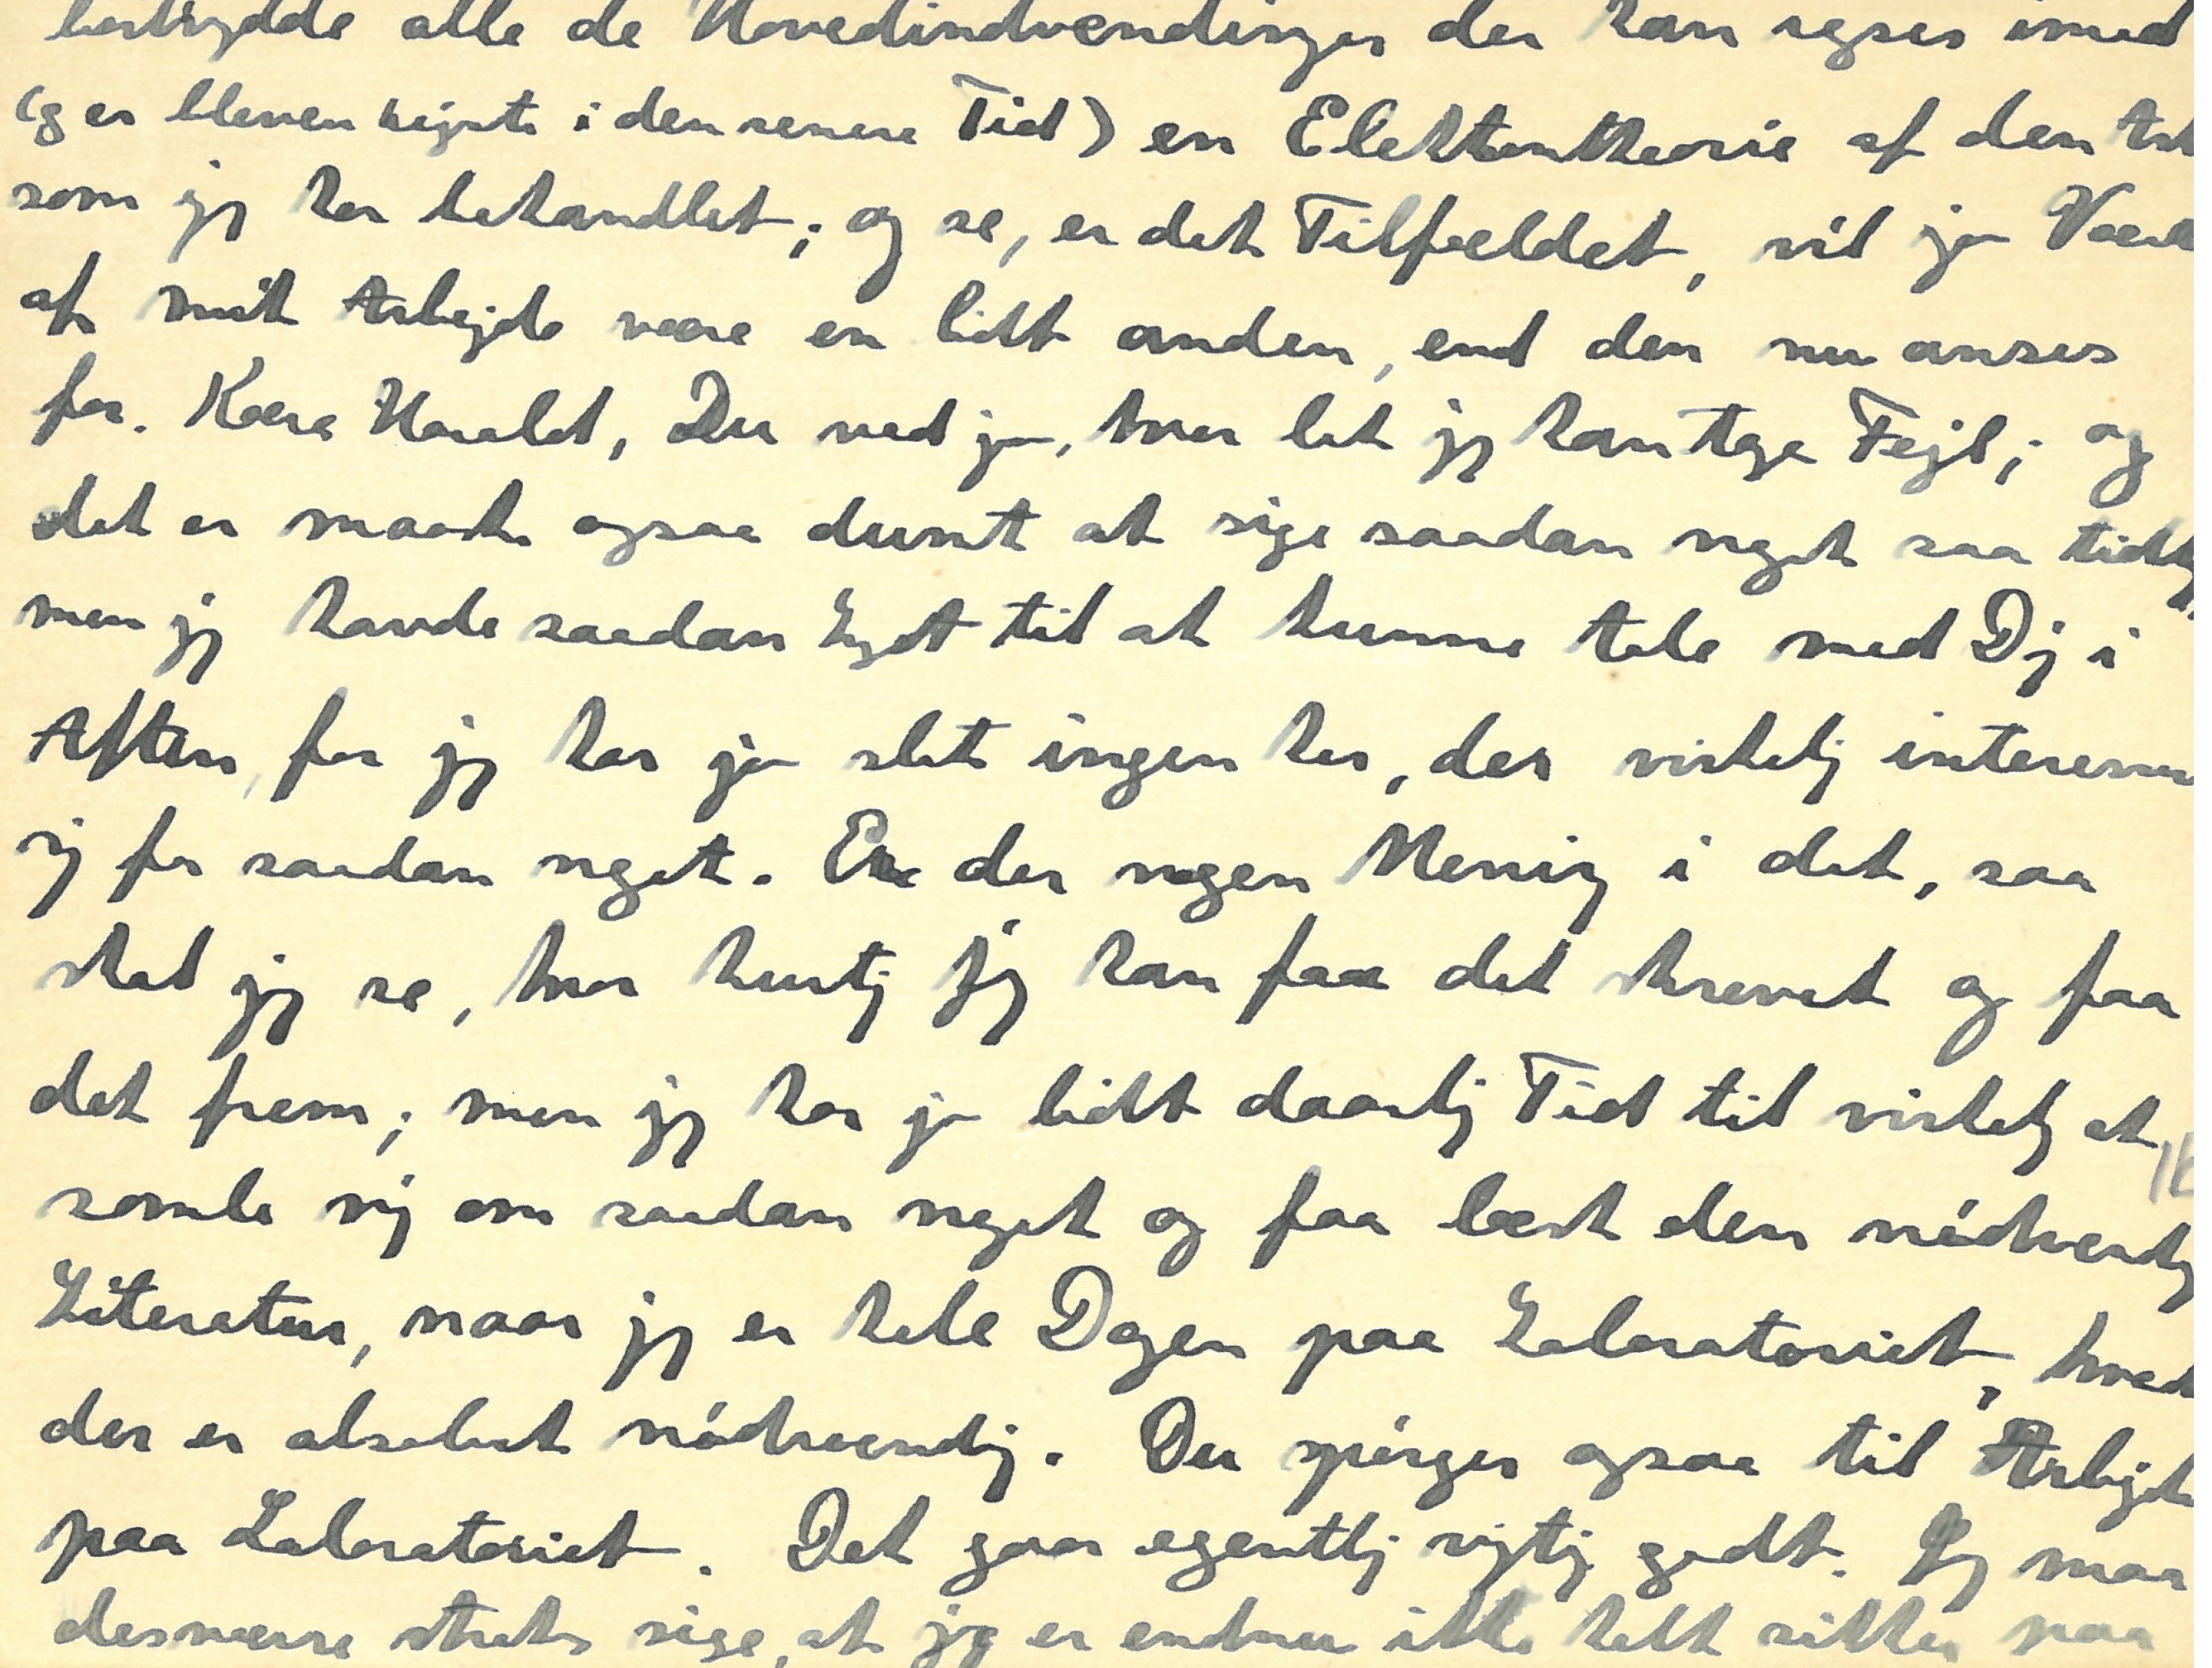 bortrydde alle de Hovedindvendinger der kan rejses imod
(og er bleven rejste i den senere Tid) en Elektrontheorie af den Art
som jeg har behandlet; og se, er det Tilfældet, vil jo
af mit Arbejde være en lidt anden, end den nu anses
for. Kære Harald, Du ved jo, hvor let jeg kan tage Fejl; og
det er maaske ogsaa dumt at sige saadan noget saa tidlig,
men jeg havde saadan Lyst til at kunne tale med Dig i
Aften, for jeg har jo slet ingen her, der virkelig interesserer
sig for saadan noget. Er der nogen Mening i det, saa
skal jeg se, hvor hurtig jeg kan faa det skrevet og faa
det frem; men jeg har jo lidt daarlig Tid til virkelig at
samle mig om saadan noget og faa læst den nódvendig
Literatur, naar jeg er hele Dagen paa Laboratoriet, hvad
der er absolut nódvendig. Du spórger ogsaa til Arbejdet
paa Laboratoriet. Det gaar egentlig rigtig godt. Jeg maa
desværre straks sige, at jeg er endnu ikke helt sikker paa